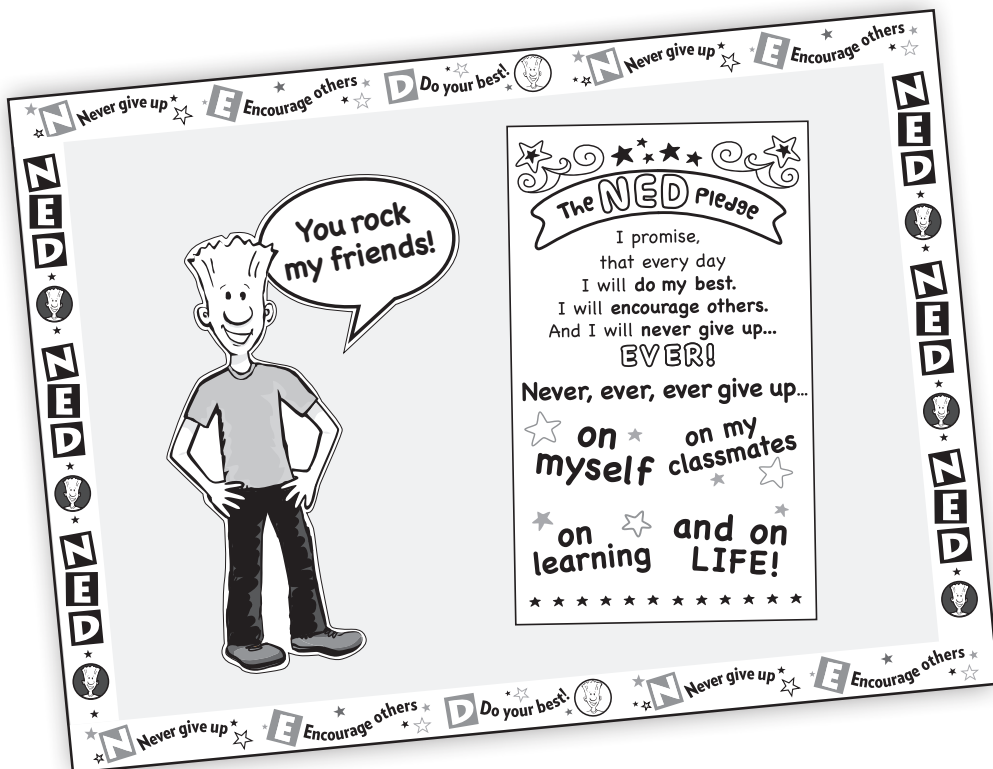 N Never give up
E Encourage others
D Do your best!
N Never give up
E Encourage others
NED
NED
NED
You rock
my friends!
The NED Pledge
I promise,
that every day
I will do my best.
I will encourage others.
And I will never give up...
EVER!
Never, ever, ever give up...
on
myself
on my
classmates
on
learning
and on
LIFE!
NED
NED
NED
N Never give up
E Encourage others
D Do your best!
N Never give up
E Encourage others